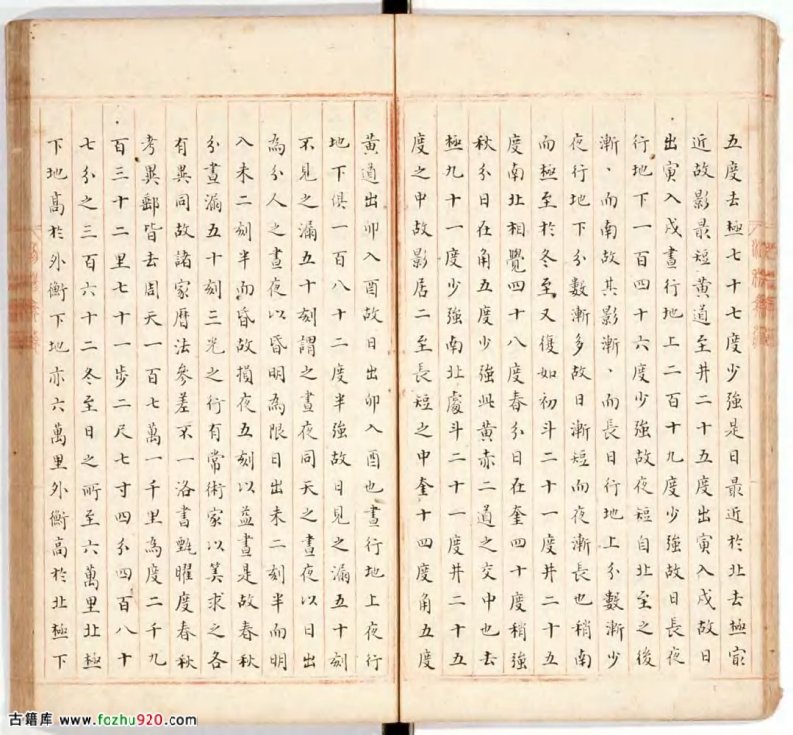 五度去極七十七度少強是日最近於北去極㝡
近故影最短黄道至井二十五度出寅入戌故日
出寅入戌晝行地上二百十九度少強故日長夜
行地下一百四十六度少強故夜短自北至之後
漸、而南故其影漸、而長日行地上分數漸少
夜行地下分數漸多故日漸短而夜漸長也稍南
而極至於冬至又復如初斗二十一度井二十五
度南北相覺四十八度春分日在奎四十度稍強
秋分日在角五度少強此黄赤二道之交中也去
極九十一度少強南北處斗二十一度井二十五
度之中故影居二至長短之中奎十四度角五度
黄道出卯入酉故日出卯入酉也晝行地上夜行
地下俱一百八十二度半強故日見之漏五十刻
不見之漏五十刻謂之晝夜同天之晝夜以日出
為分人之晝夜以昏明為限日出未二刻半而明
入未二刻半而昏故損夜五刻以益晝是故春秋
分晝漏五十刻三光之行有常術家以筭求之各
有異同故諸家曆法參差不一洛書甄曜度春秋
考異郵皆去周天一百七萬一千里為度二千九
百三十二里七十一步二尺七寸四分四百八十
七分之三百六十二冬至日之所至六萬里北極
下地高於外衡下地亦六萬里外衡高於北極下
古籍库 www.fozhu920.com